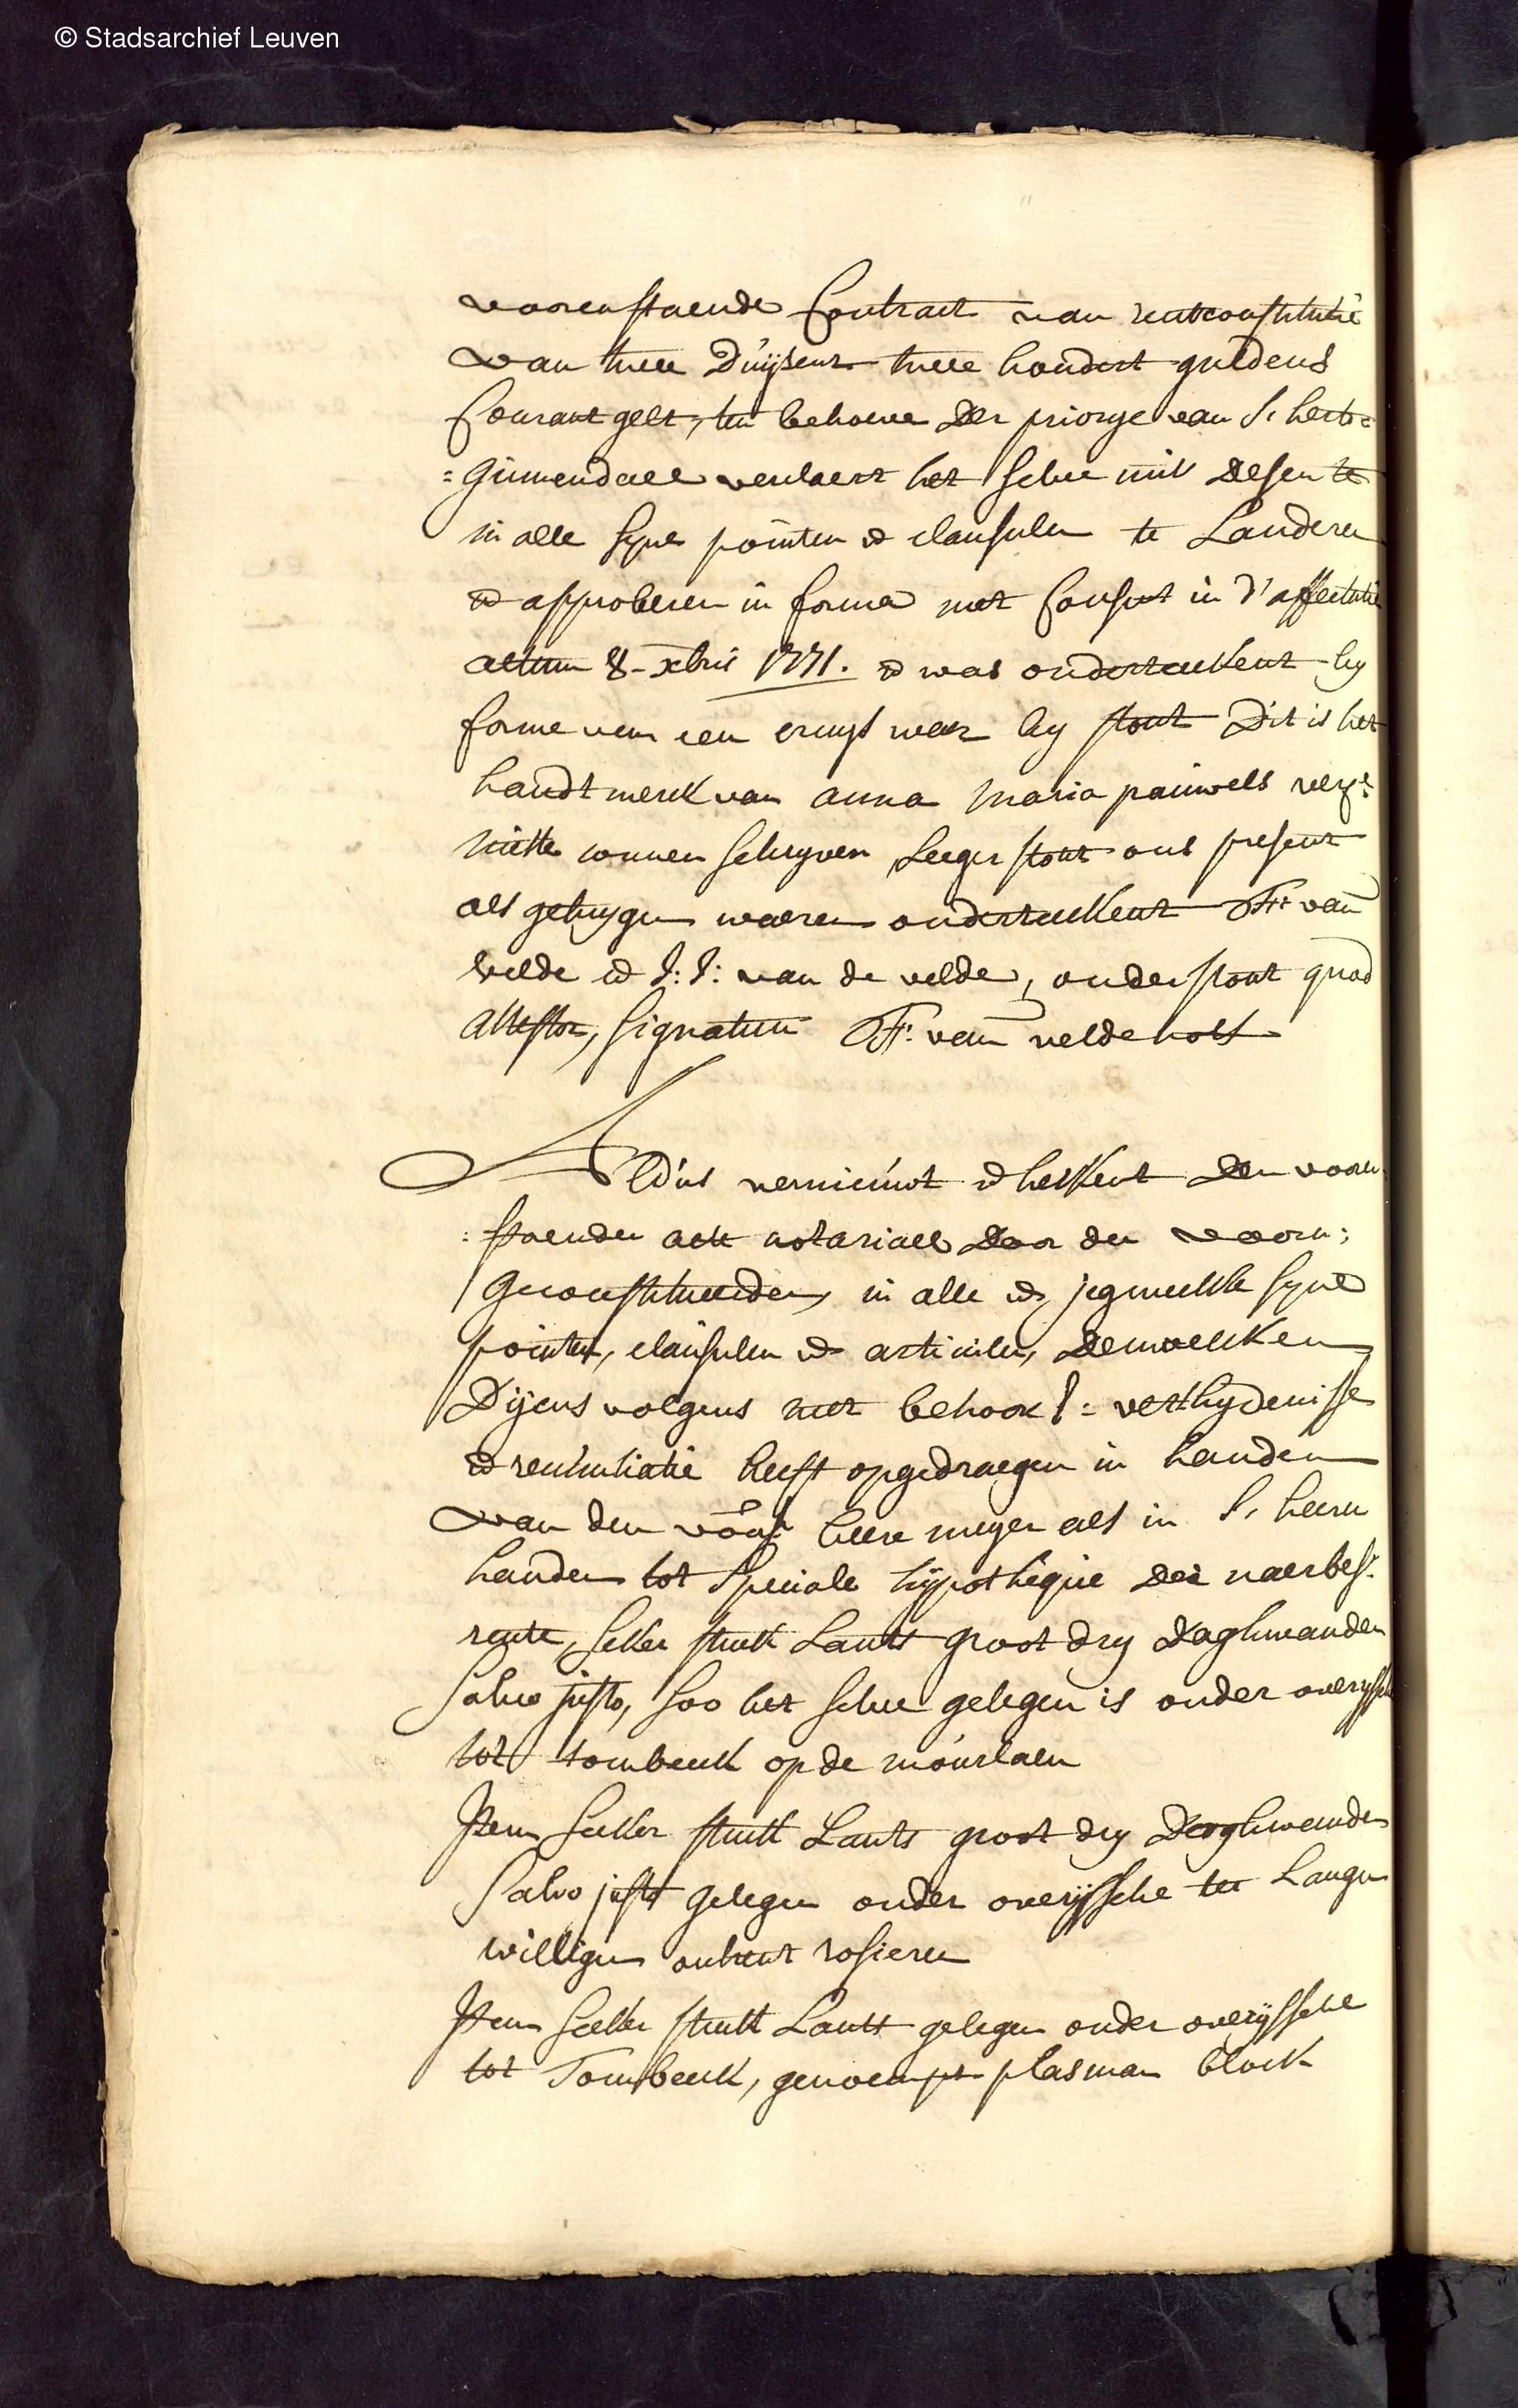 © Stadsarchief Leuven
voorenstaende Contract van rentconstitutie
van twee duijsent twee hondert guldens
Courant gelt, ten behoeve der priorye van S. herto=
=ginnendael verclaert het selve mits desen te
in alle syne pointen en clausulen te Lauderen
en approberen in forma met Consent in d'affectatie
actum 8 - xbris 1771. en was onderteekent by
forme van een cruys waer by stont Dit is het
handtmerk van anna Maria pauwels verc:
niette connen schryven Leeger stont ons present
als getuygen waeren onderteekent F: van
velde en J: J: van de velde, onderstont quod
attestor, signatum F: van velde nots
Aldus vernieuwt en herkent den voorn
:staenden acte notariael door den voorn:
geconstitueerden, in alle en jegewelcke syne
pointen, clausulen en articulen, dewelcken
Dijens volgens met behoorl: verthydenisse
en renuntiatie heeft opgedraegen in handen
van den voors: heere meyer als in S. heeren
handen tot speciale hypotheque der naerbes:
rente, seker stuck Lants groot dry daghwanden
salvo justo, soo het selve gelegen is onder overyssche
tot tombeeck op de
Item seeker stuck Lants groot dry daghwanden
salvo justo gelegen onder overijssche ter Langen
willigen ontrent rosieren
Item seeker stuck Lants gelegen onder overijssche
tot Tombeeck, genoempt plasman block